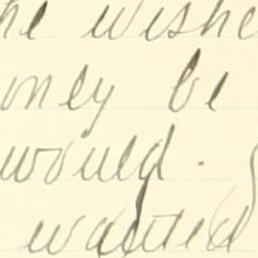 he wishe
only be
would.
wanted